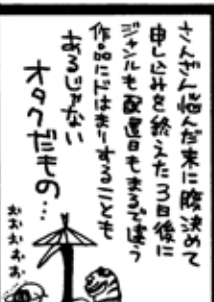 さんざん悩んだ末に腹決めて
申し込みを終えた3日後に
ジャンルも配置日もまるで違う
作品にドはまりすることも
あるじゃない
オタクだもの…
おおおおお